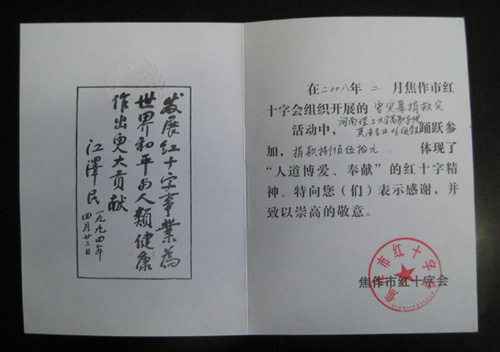 发展红十字事業為
世界和平与人類健康
作出更大貢献
江澤民
一九九四年
四月廿二日
在二〇〇八年 二 月焦作市红
十字会组织开展的 雪灾募捐救灾
河南理工大学高职学院
活动中， 英语专业 踊跃参
加， 捐款 佰伍拾元. 体现了
“人道博爱、奉献”的红十字精
神。特向您（们）表示感谢，并
致以崇高的敬意。
焦作市红十字会
焦作市红十字会